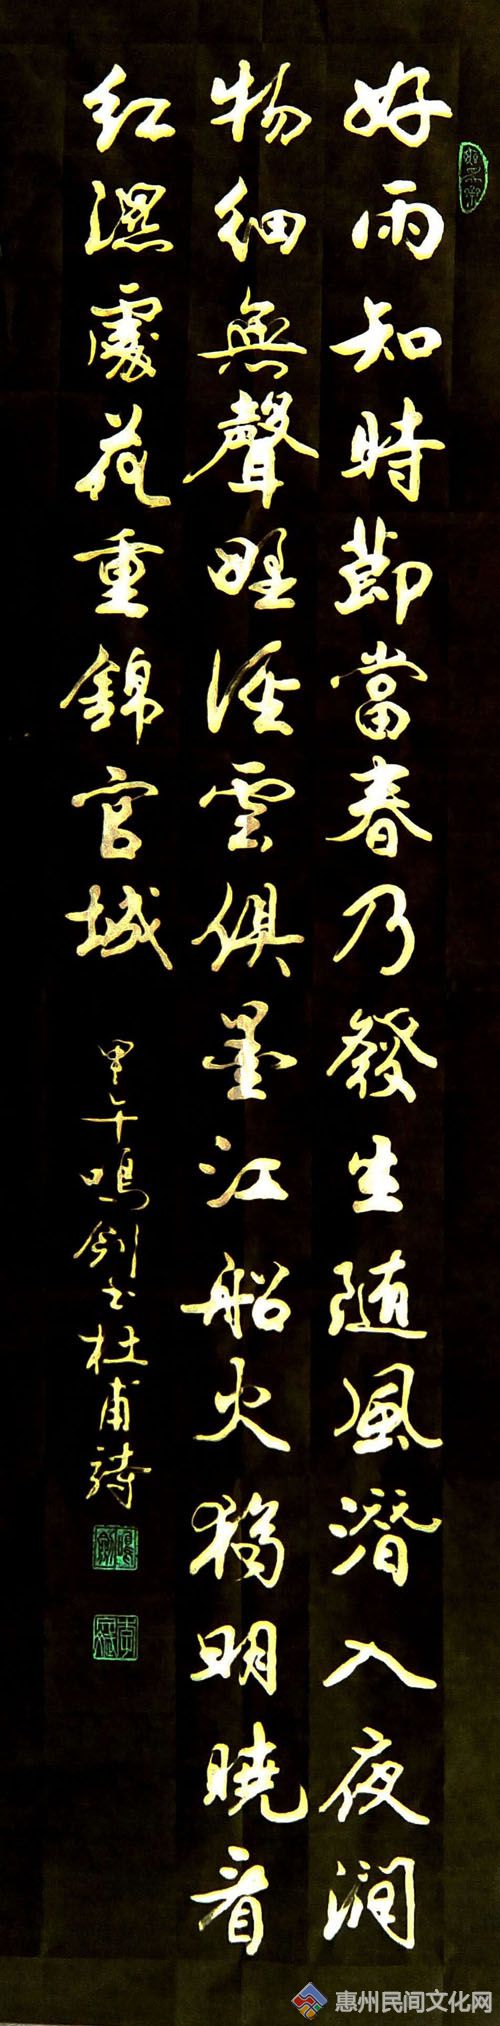 好雨知時節當春乃發生随風潛入夜潤
物細無聲野徑雲俱墨江船火獨明曉看
紅濕處花重錦官城
甲午鳴劍书杜甫詩
惠州民间文化网